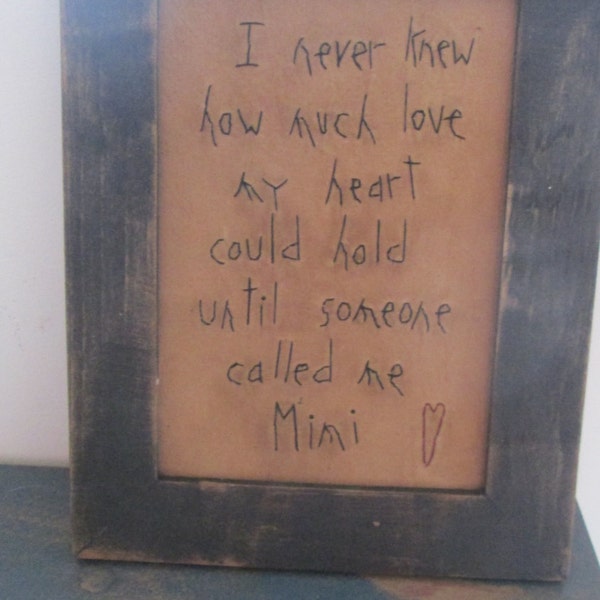 I never knew
how much love
my heart
could hold
until someone
called me
Mimi